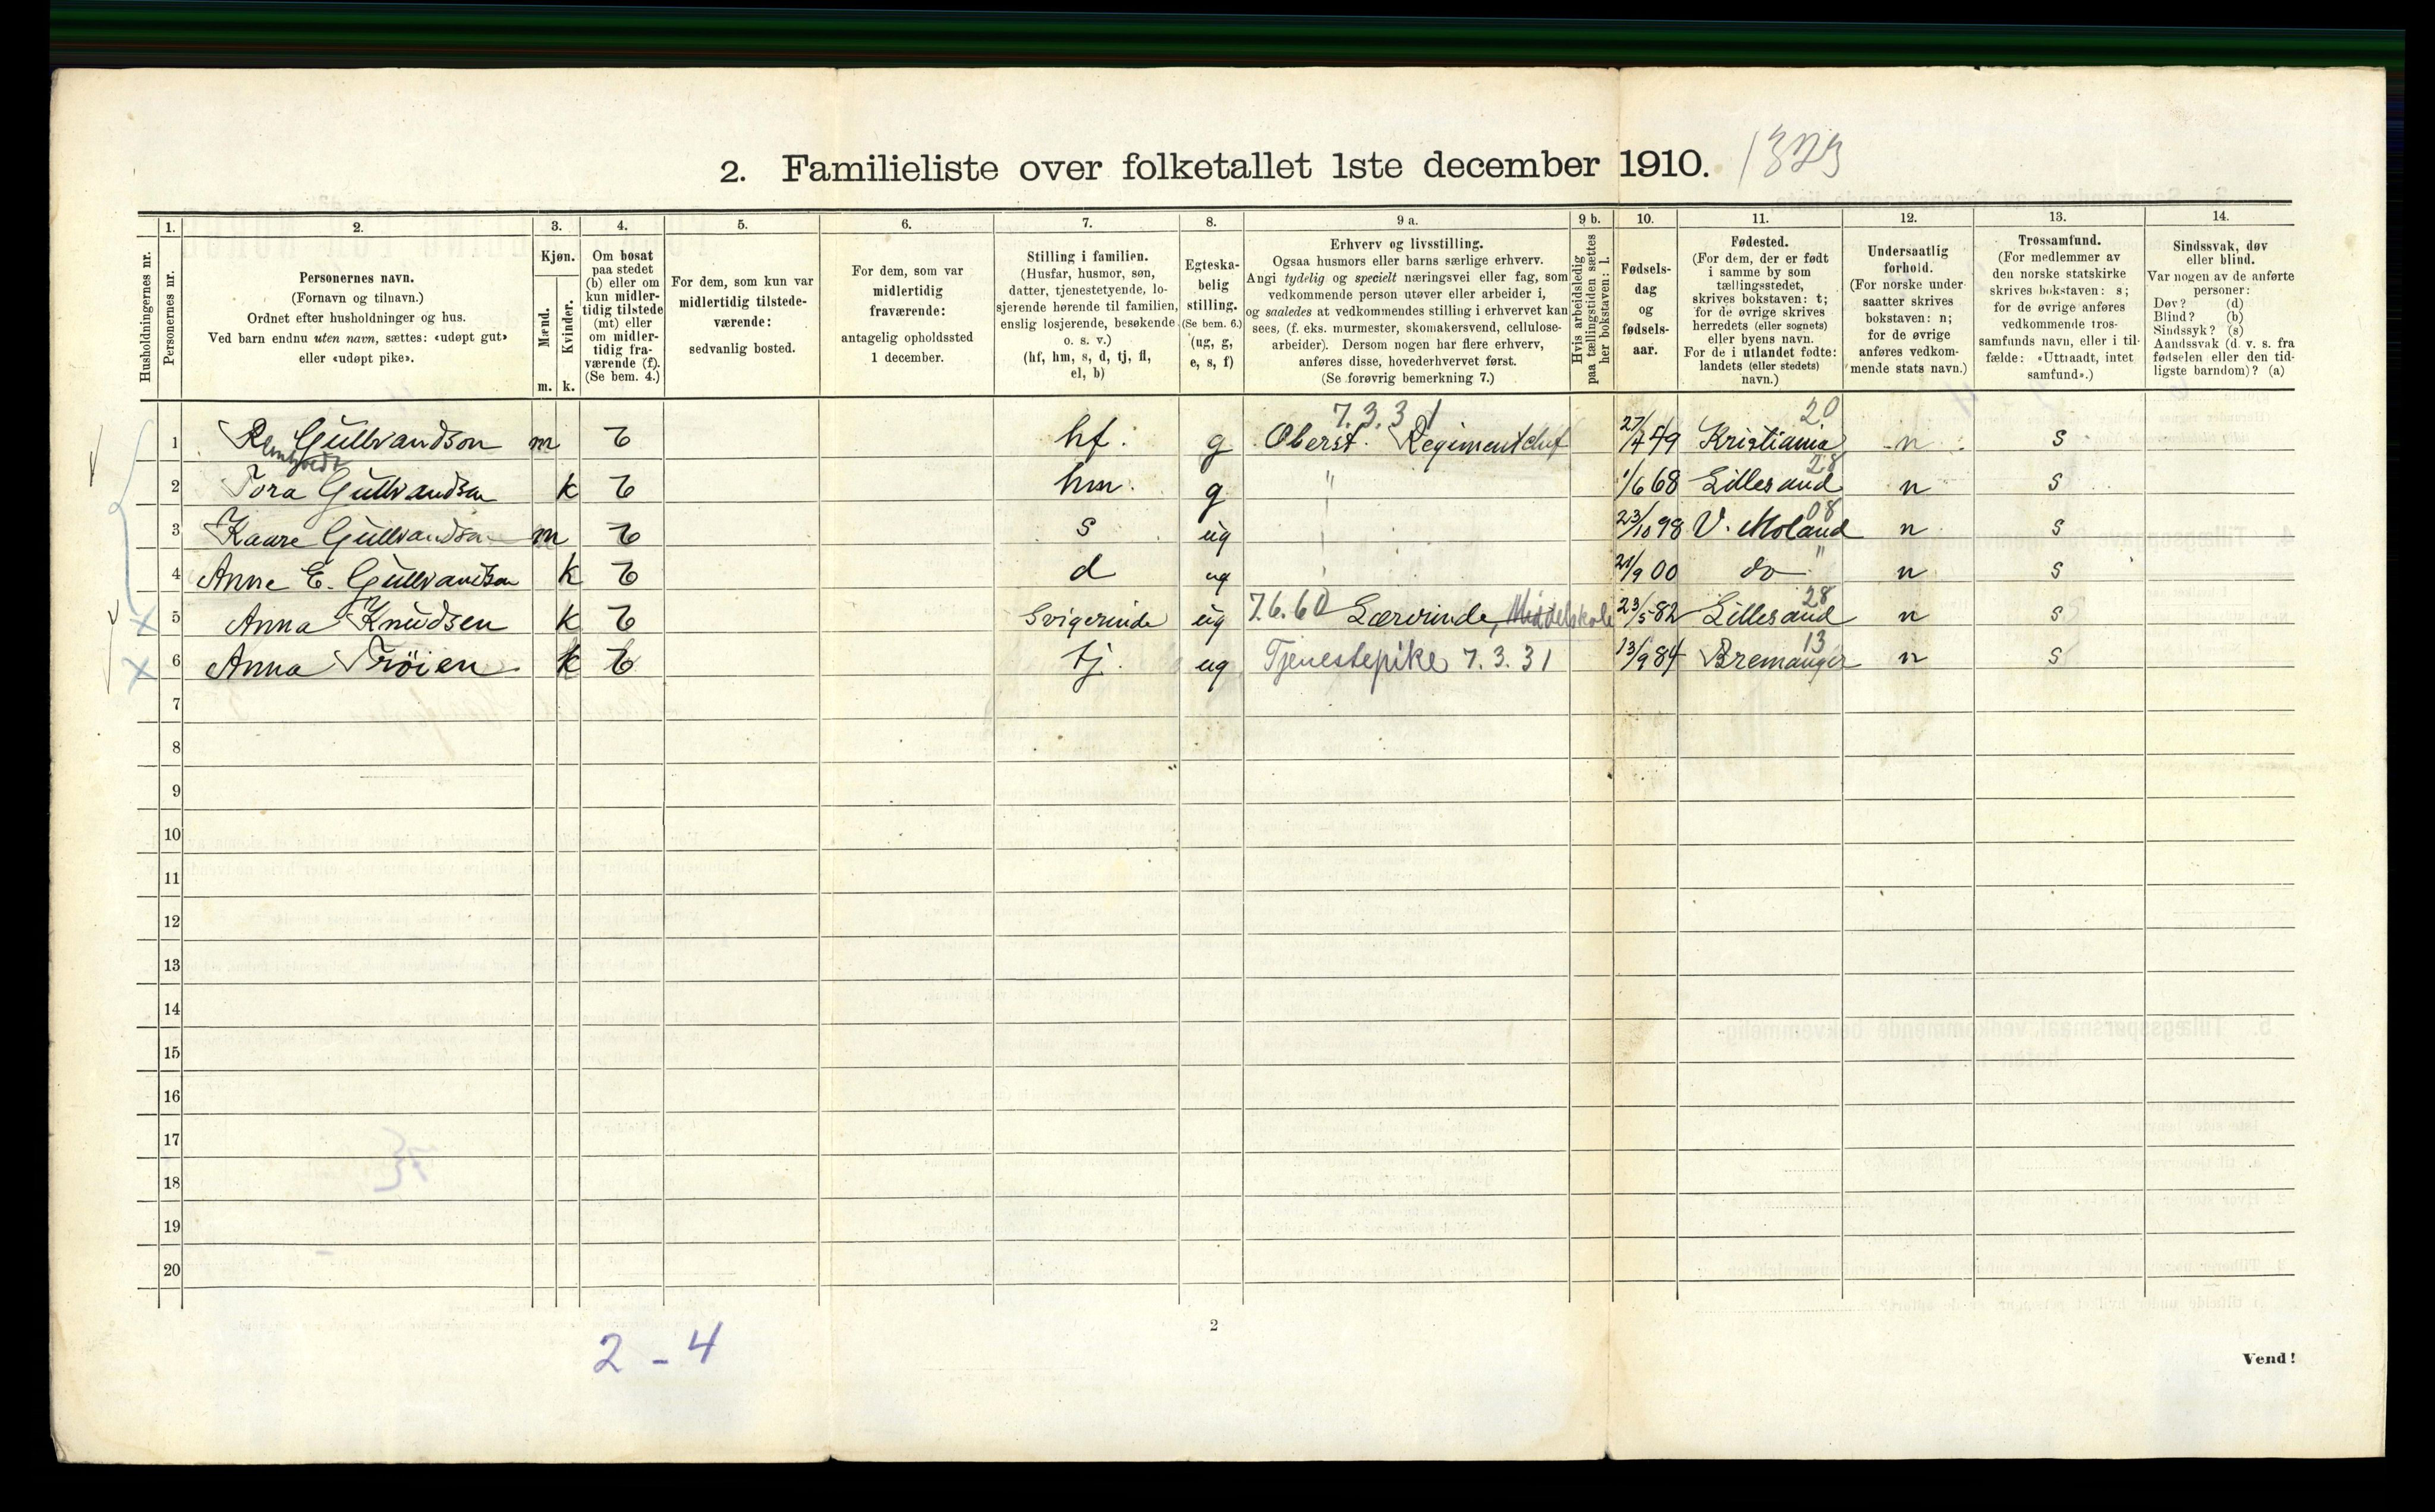 2. Familieliste over folketallet 1ste december 1910. 1323
Husholdningernes nr.
1. Personernes nr.
2. Personernes navn.
(Fornavn og tilnavn.)
Ordnet efter husholdninger og hus.
Ved barn endnu uten navn, sættes: «udøpt gut»
eller «udøpt pike».
3. Kjøn.
Mænd. m.
Kvinder. k.
4. Om bosat
paa stedet
(b) eller om
kun midler-
tidig tilstede
(mt) eller
om midler-
tidig fra-
værende (f).
(Se bem. 4.)
5. For dem, som kun var
midlertidig tilstede-
værende:
sedvanlig bosted.
6. For dem, som var
midlertidig
fraværende:
antagelig opholdssted
1 december.
7. Stilling i familien.
(Husfar, husmor, søn,
datter, tjenestetyende, lo-
sjerende hørende til familien,
enslig losjerende, besøkende
o. s. v.)
(hf, hm, s, d, tj, fl,
el, b)
8. Egteska-
belig
stilling.
(Se bem. 6.)
(ug, g,
e, s, f)
9 a. Erhverv og livsstilling.
Ogsaa husmors eller barns særlige erhverv.
Angi tydelig og specielt næringsvei eller fag, som
vedkommende person utøver eller arbeider i,
og saaledes at vedkommendes stilling i erhvervet kan
sees, (f. eks. murmester, skomakersvend, cellulose-
arbeider). Dersom nogen har flere erhverv,
anføres disse, hovederhvervet først.
(Se forøvrig bemerkning 7.)
9 b. Hvis arbeidsledig
paa tællingstiden sættes
her bokstaven: l.
10. Fødsels-
dag
og
fødsels-
aar.
11. Fødested.
(For dem, der er født
i samme by som
tællingsstedet,
skrives bokstaven: t;
for de øvrige skrives
herredets (eller sognets)
eller byens navn.
For de i utlandet fødte:
landets (eller stedets)
navn.)
12. Undersaatlig
forhold.
(For norske under-
saatter skrives
bokstaven: n;
for de øvrige
anføres vedkom-
mende stats navn.)
13. Trossamfund.
(For medlemmer av
den norske statskirke
skrives bokstaven: s;
for de øvrige anføres
vedkommende tros-
samfunds navn, eller i til-
fælde: «Uttraadt, intet
samfund».)
14. Sindssvak, døv
eller blind.
Var nogen av de anførte
personer:
Døv? (d)
Blind? (b)
Sindssyk? (s)
Aandssvak (d. v. s. fra
fødselen eller den tid-
ligste barndom)? (a)
7.3.31 20
1 Gullvandson m b hf. g Oberst. Regimentchef 27/4 49 Kristiania n s
28
2 Tora Gullvandson k b hm. g " 1/6 68 Lillesand n s
08
3 Kaare Gullvandson m b s ug 23/10 98 V. Moland n s
4 Anne E. Gullvandson k b d ug 21/9 00 do " n s
28
5 Anna Knudsen k b Svigerinde ug 7.6.60 Lærerinde, Middelskole 23/5 82 Lillesand n s
13
6 Anna Trøien k b tj. ug Tjenestepike 7.3.31 13/9 84 Bremanger n s
7
8
9
10
11
12
13
14
15
16
17
18
19
20
2
2 - 4
Vend!